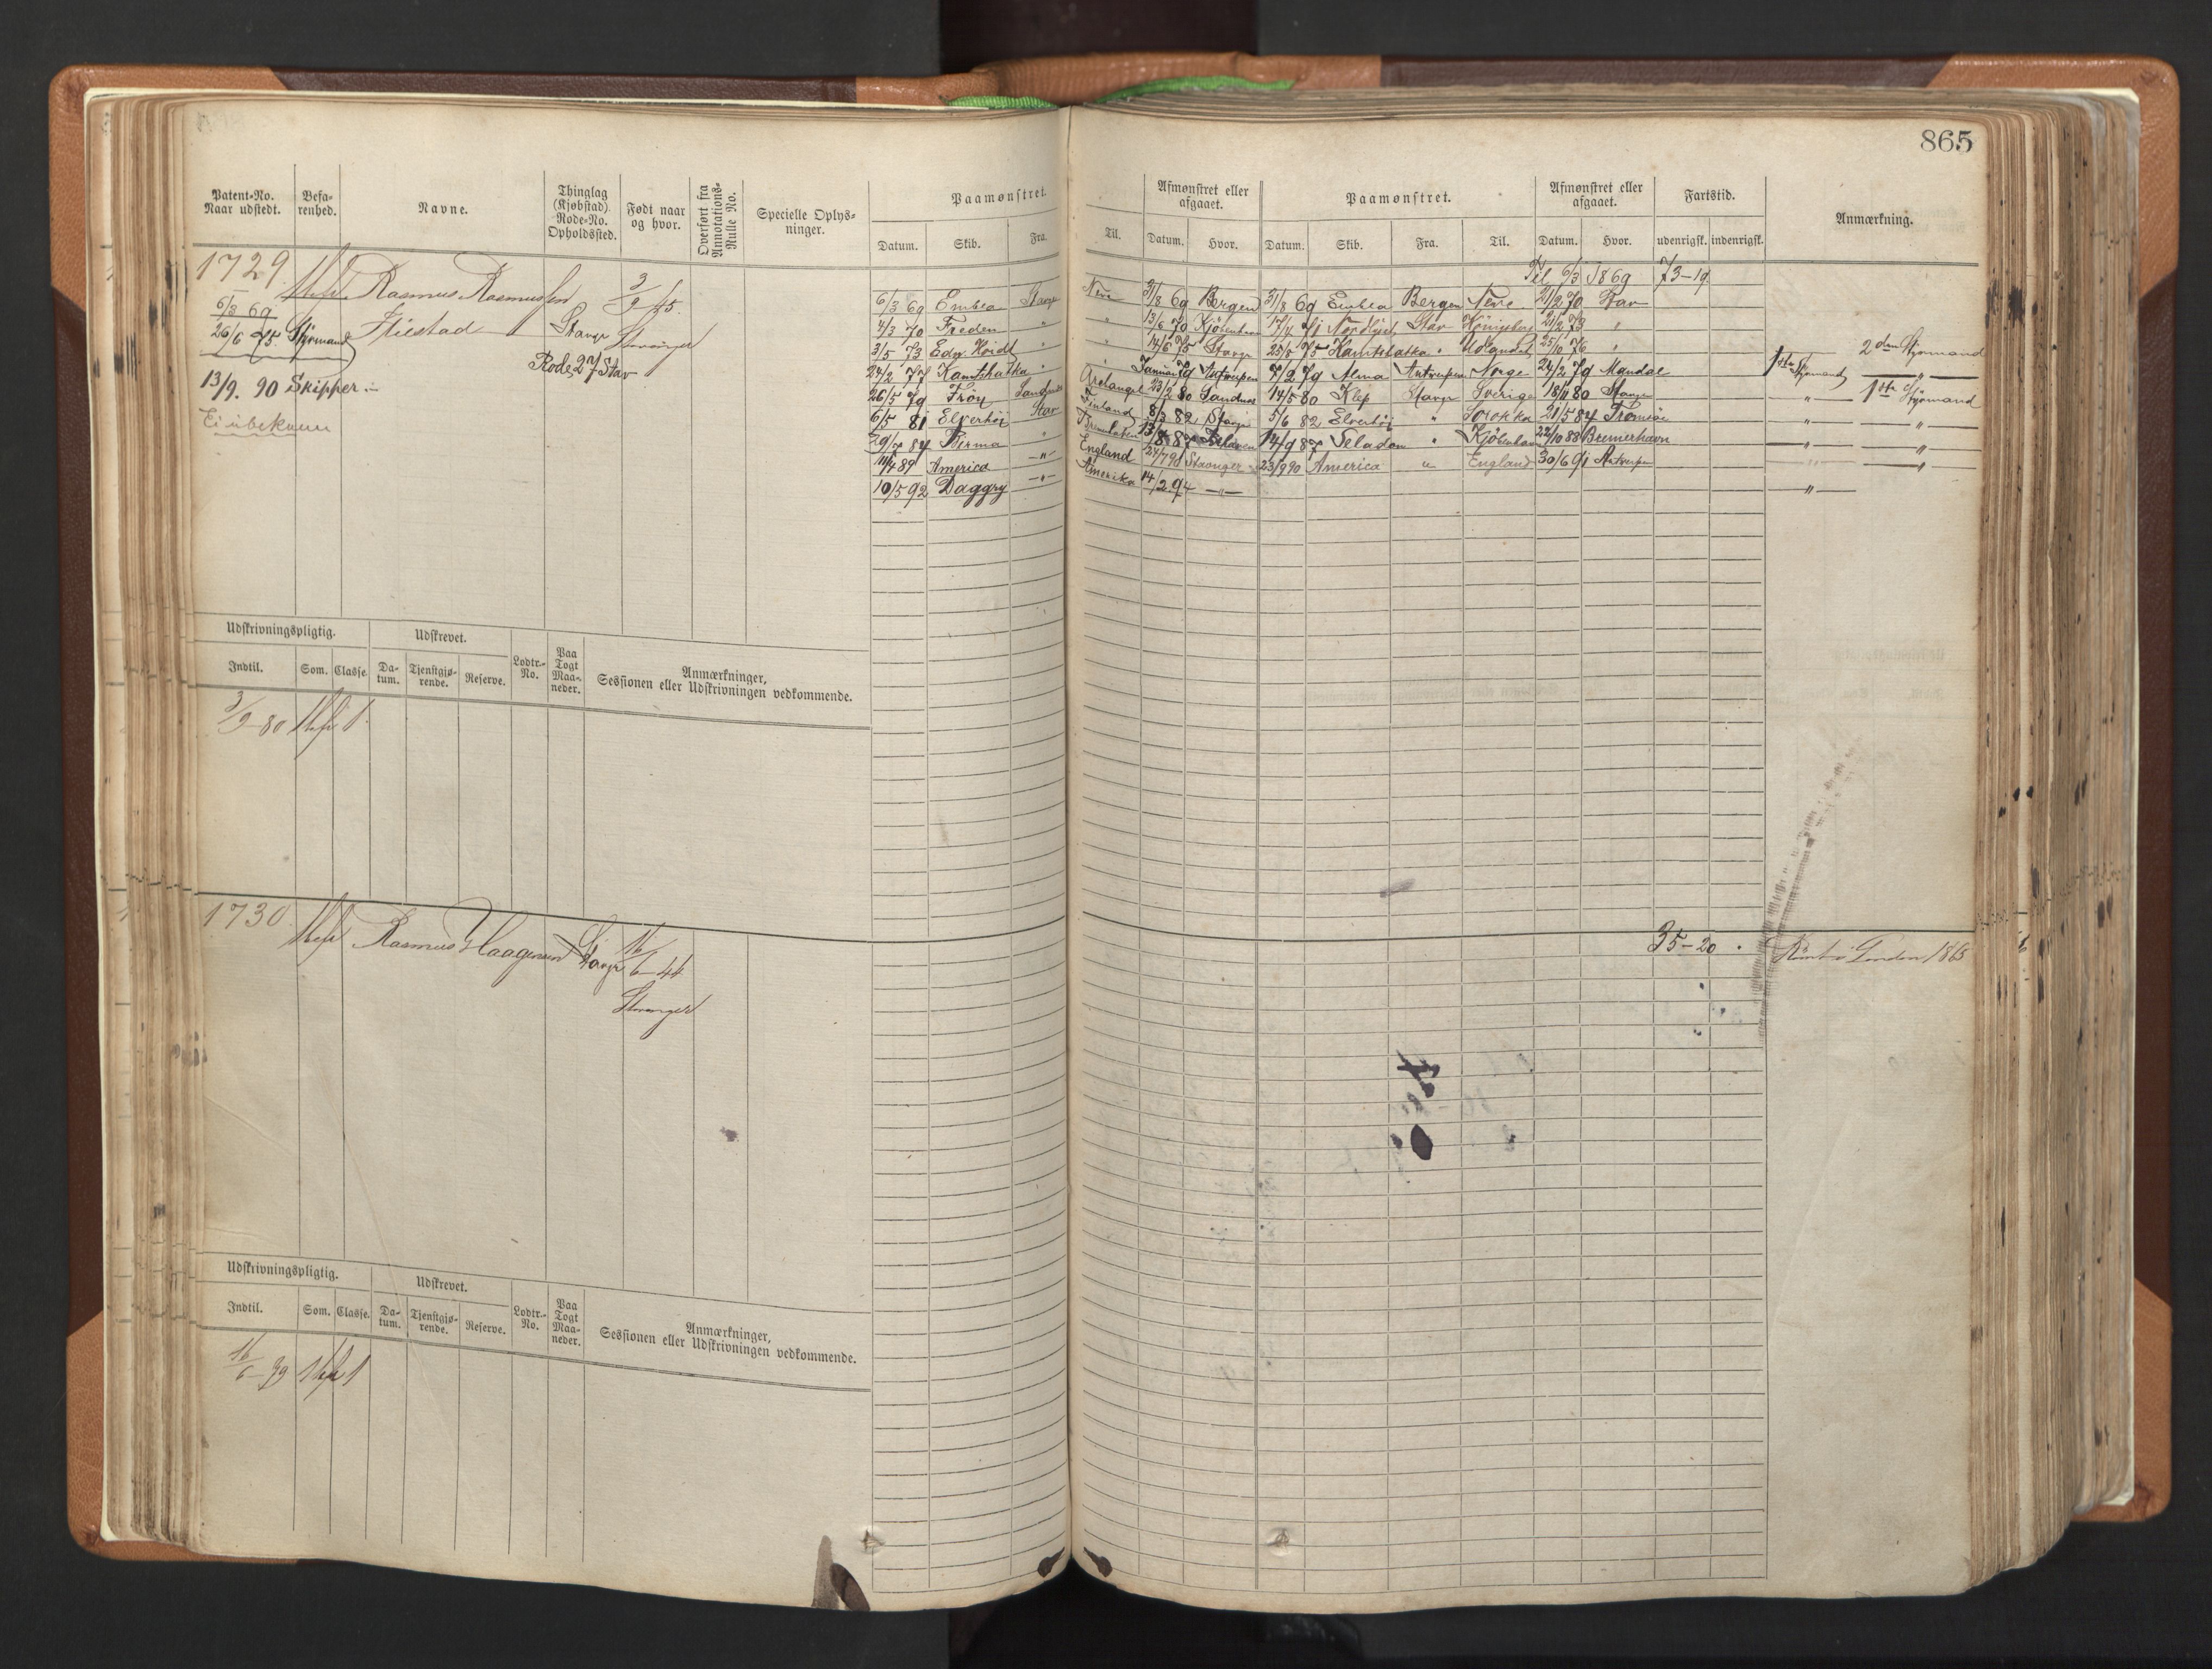 865
Patent-No. Naar udstedt. Befarenhed. Navne. Thinglag (Kjøbstad). Rode-No. Opholdssted. Født naar og hvor. Overført fra Annotations-Rulle No. Specielle Oplysninger. Paamønstret. Afmønstret eller afgaaet. Paamønstret. Afmønstret eller afgaaet. Fartstid. Anmærkning.
Datum. Skib. Fra. Til. Datum. Hvor. Datum. Skib. Fra. Til. Datum. Hvor. udenrigsk. indenrigsk.
1729 Rasmus Rasmussen Stavgr 3/9 45. Stavanger
6/3 69
26/6 75 Styrmand
Rode 27 Stav
13/9. 90 Skipper
Ei iubekvem
Til 6/3 1869 73-19.
6/3 69 Embla Stavgr Neve 31/8 69 Bergen 31/8 69 Embla Bergen Neve 21/2 70 Stav
4/3 70 Freden " " 13/6 70 Kjöbenhavn 17/4 71 Nordlyset Stav Königsberg 21/2 73 "
3/5 73 Edw. Hoidt " " 14/6 75 Stavgr 25/5 75 Kamtshatka " Udlandet 25/10 76 " 2den Styrmand
24/2 77 Kamtshatka " " Januar 79 Antverpen 7/2 79 Alma Antverpen Norge 24/2 79 Mandal 1ste Styrmand "
26/5 79 Fröy Sandnæs Archangel 23/2 80 Sandnæs 14/5 80 Klep Stavgr Sverige 18/11 80 Stavgr " 1ste Styrmand
6/5 81 Elverhöi Stav Finland 8/3 82 Stavgr 5/6 82 Elverhöi " Sorokka 21/5 84 Tromsöe " "
29/7 84 Firma " 87 14/9 87 Seladon " Kjöbenhavn 22/10 88 Bremerhavn " "
11/4 89 America " England 24/7 90 Stavanger 23/9 90 America " England 30/6 91 Antverpen "
10/5 92 Daggry " Amerika 14/2 94 " "
Udskrivningspligtig. Udskrevet. Lodtr.-No. Paa Togt Maaneder. Anmærkninger, Sessionen eller Udskrivningen vedkommende.
Indtil. Som. Classe. Datum. Tjenstgjørende. Reserve.
3/9-80 1
1730 Rasmus Haagensen Stavgr 16/6-44 Stavanger 35-20 Römt i London 1865
Udskrivningspligtig. Udskrevet. Lodtr.-No. Paa Togt Maaneder. Anmærkninger, Sessionen eller Udskrivningen vedkommende.
Indtil. Som. Classe. Datum. Tjenstgjørende. Reserve.
16/6-79 1